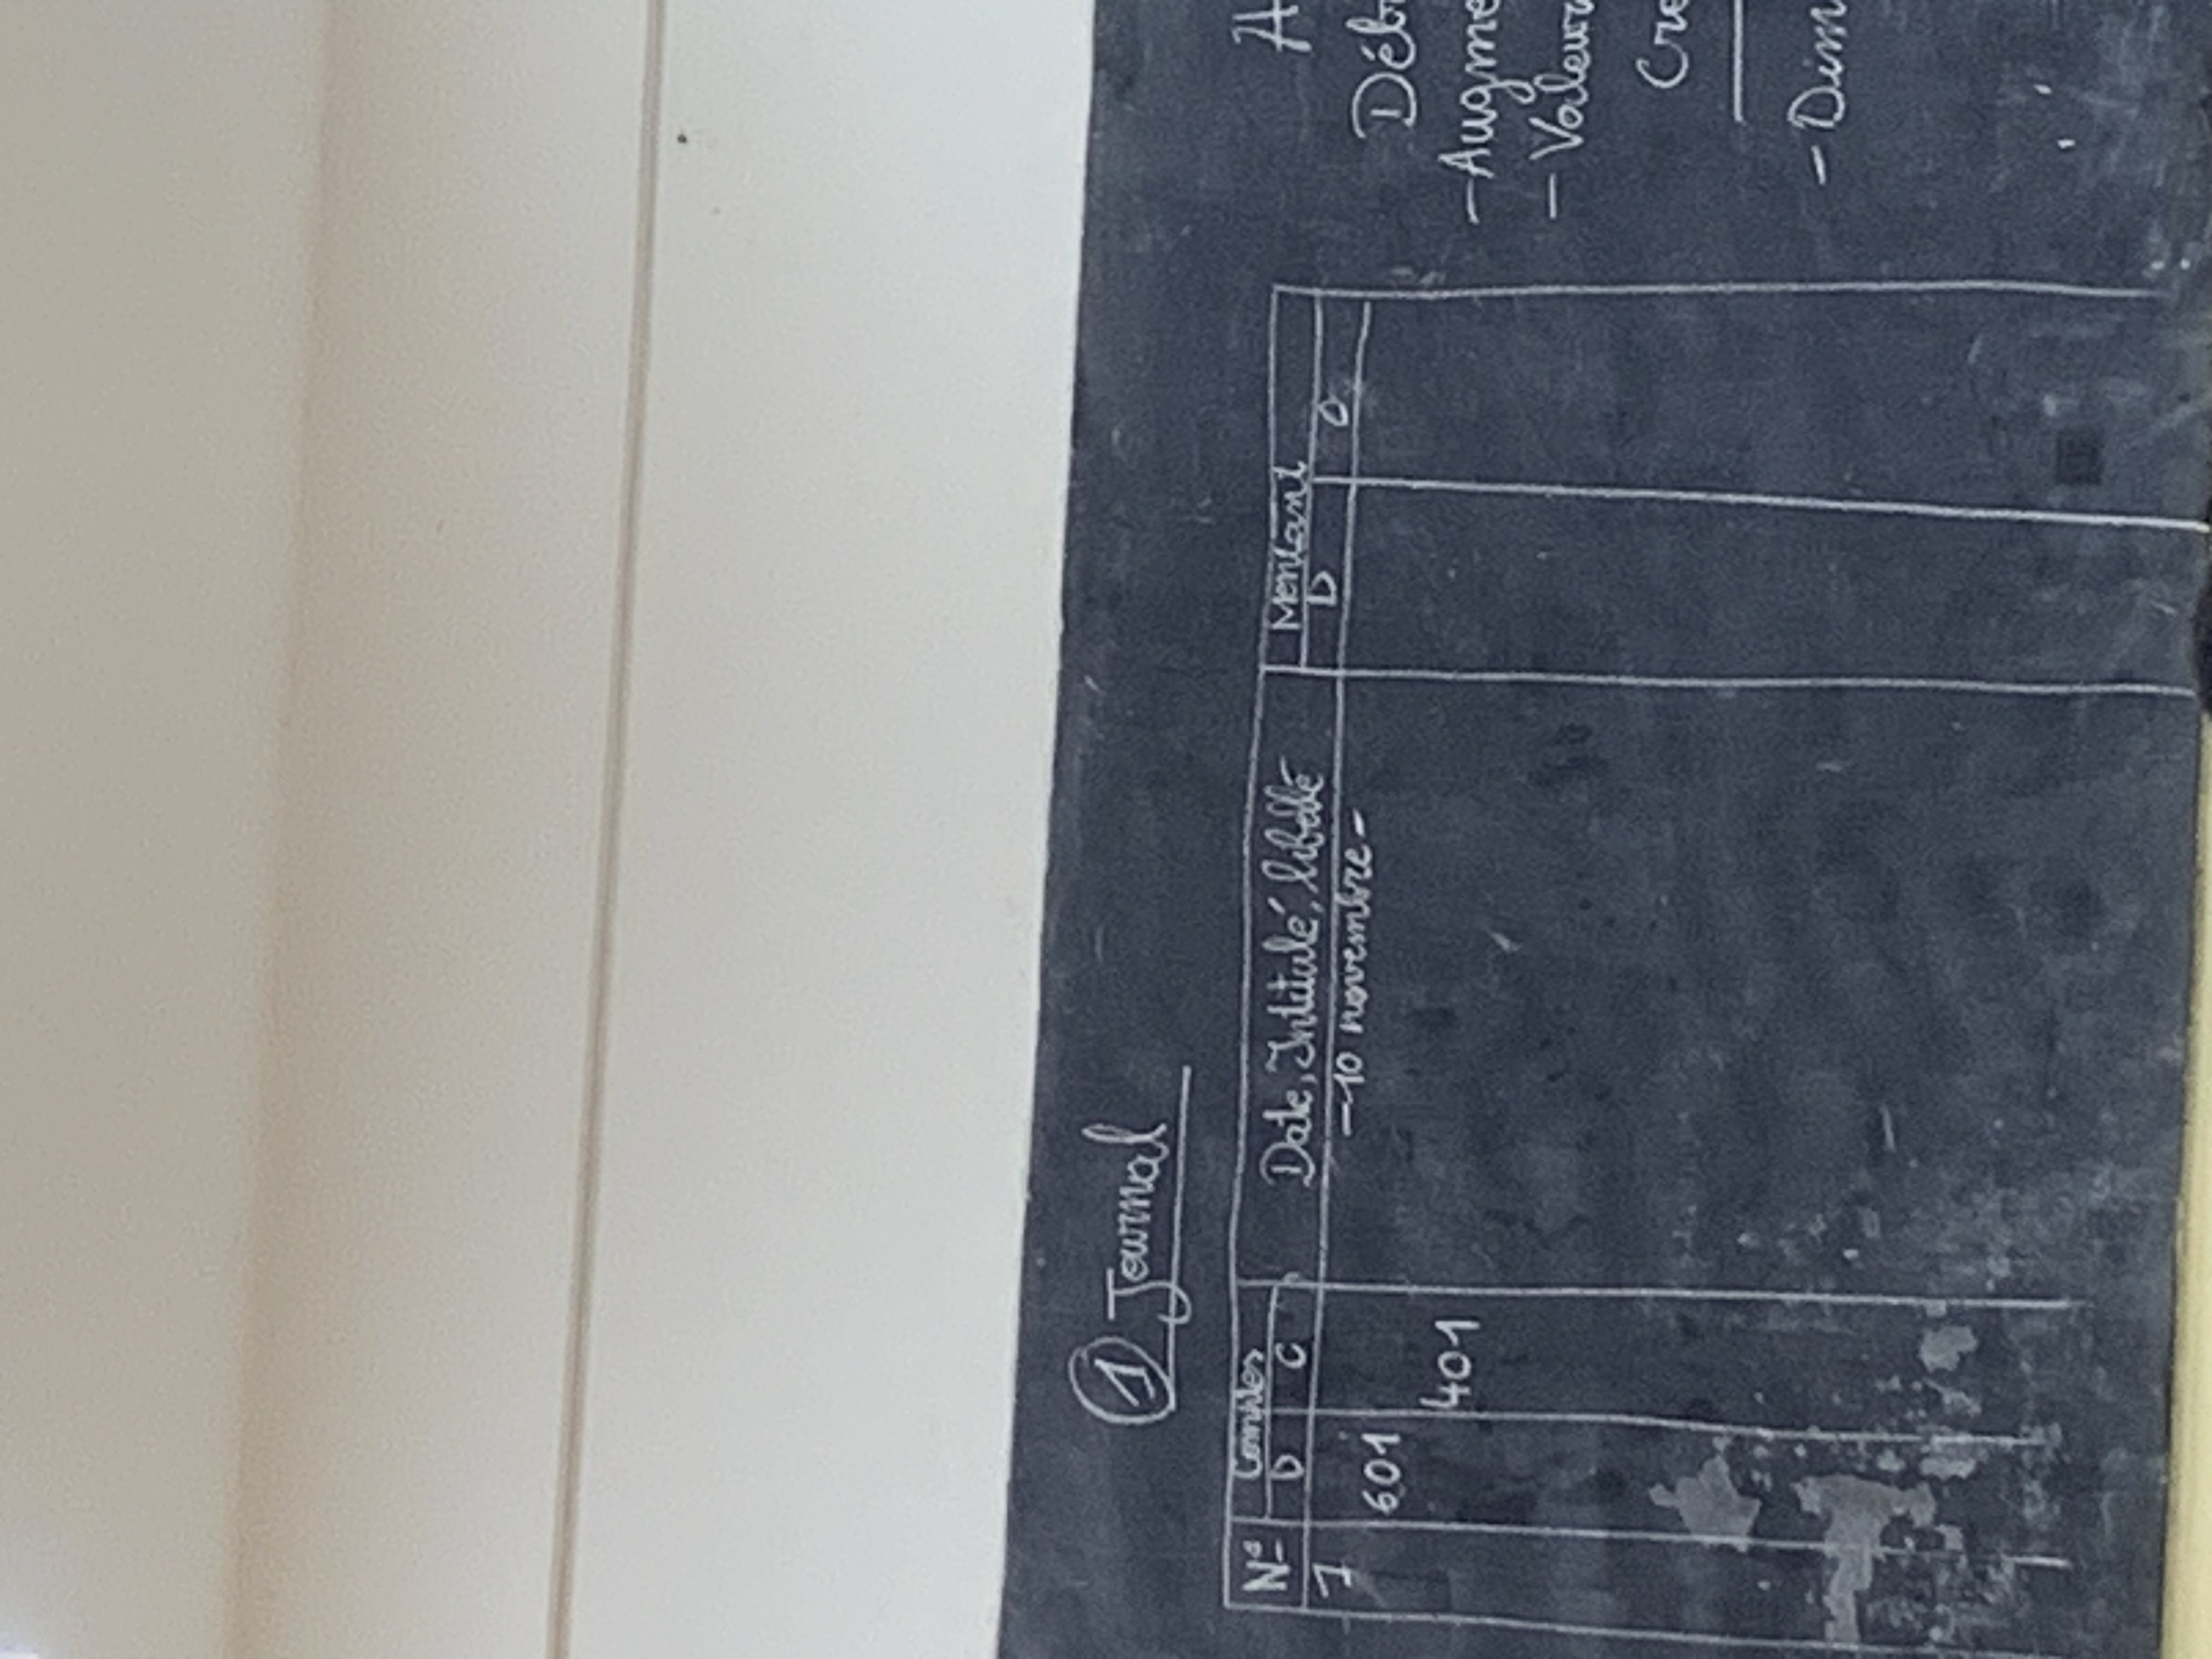 ① Journal
N° Comptes Date, Intitulé, libellé Montant
D C D C
1 -10 novembre-
601
401
A
Déb
-Augme
- Valeur
Cre
- Dim